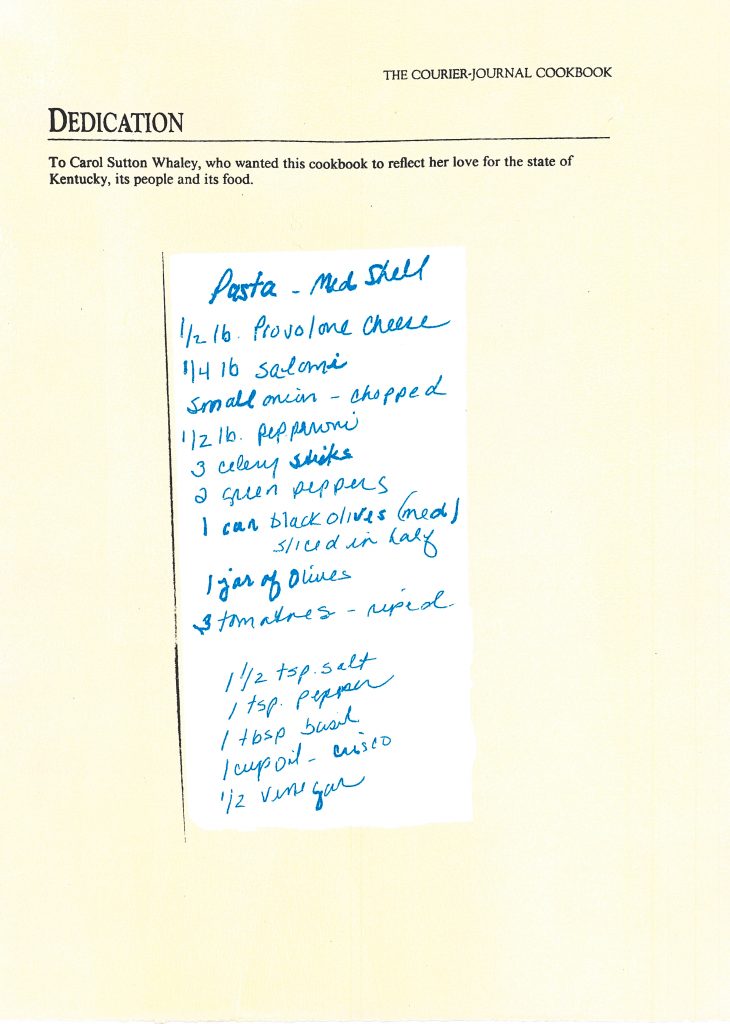 THE COURIER-JOURNAL COOKBOOK
DEDICATION
To Carol Sutton Whaley, who wanted this cookbook to reflect her love for the state of
Kentucky, its people and its food.
Pasta - Med Shell
1/2 lb. Provolone Cheese
1/4 lb Salami
Small onion - chopped
1/2 lb. pepperoni
3 celery sticks
2 green peppers
1 can black olives (med)
sliced in half
1 jar of Olives
3 tomatoes - riped
1 1/2 tsp. salt
1 tsp. Pepper
1 tbsp basil
1 cup oil - crisco
1/2 vinegar